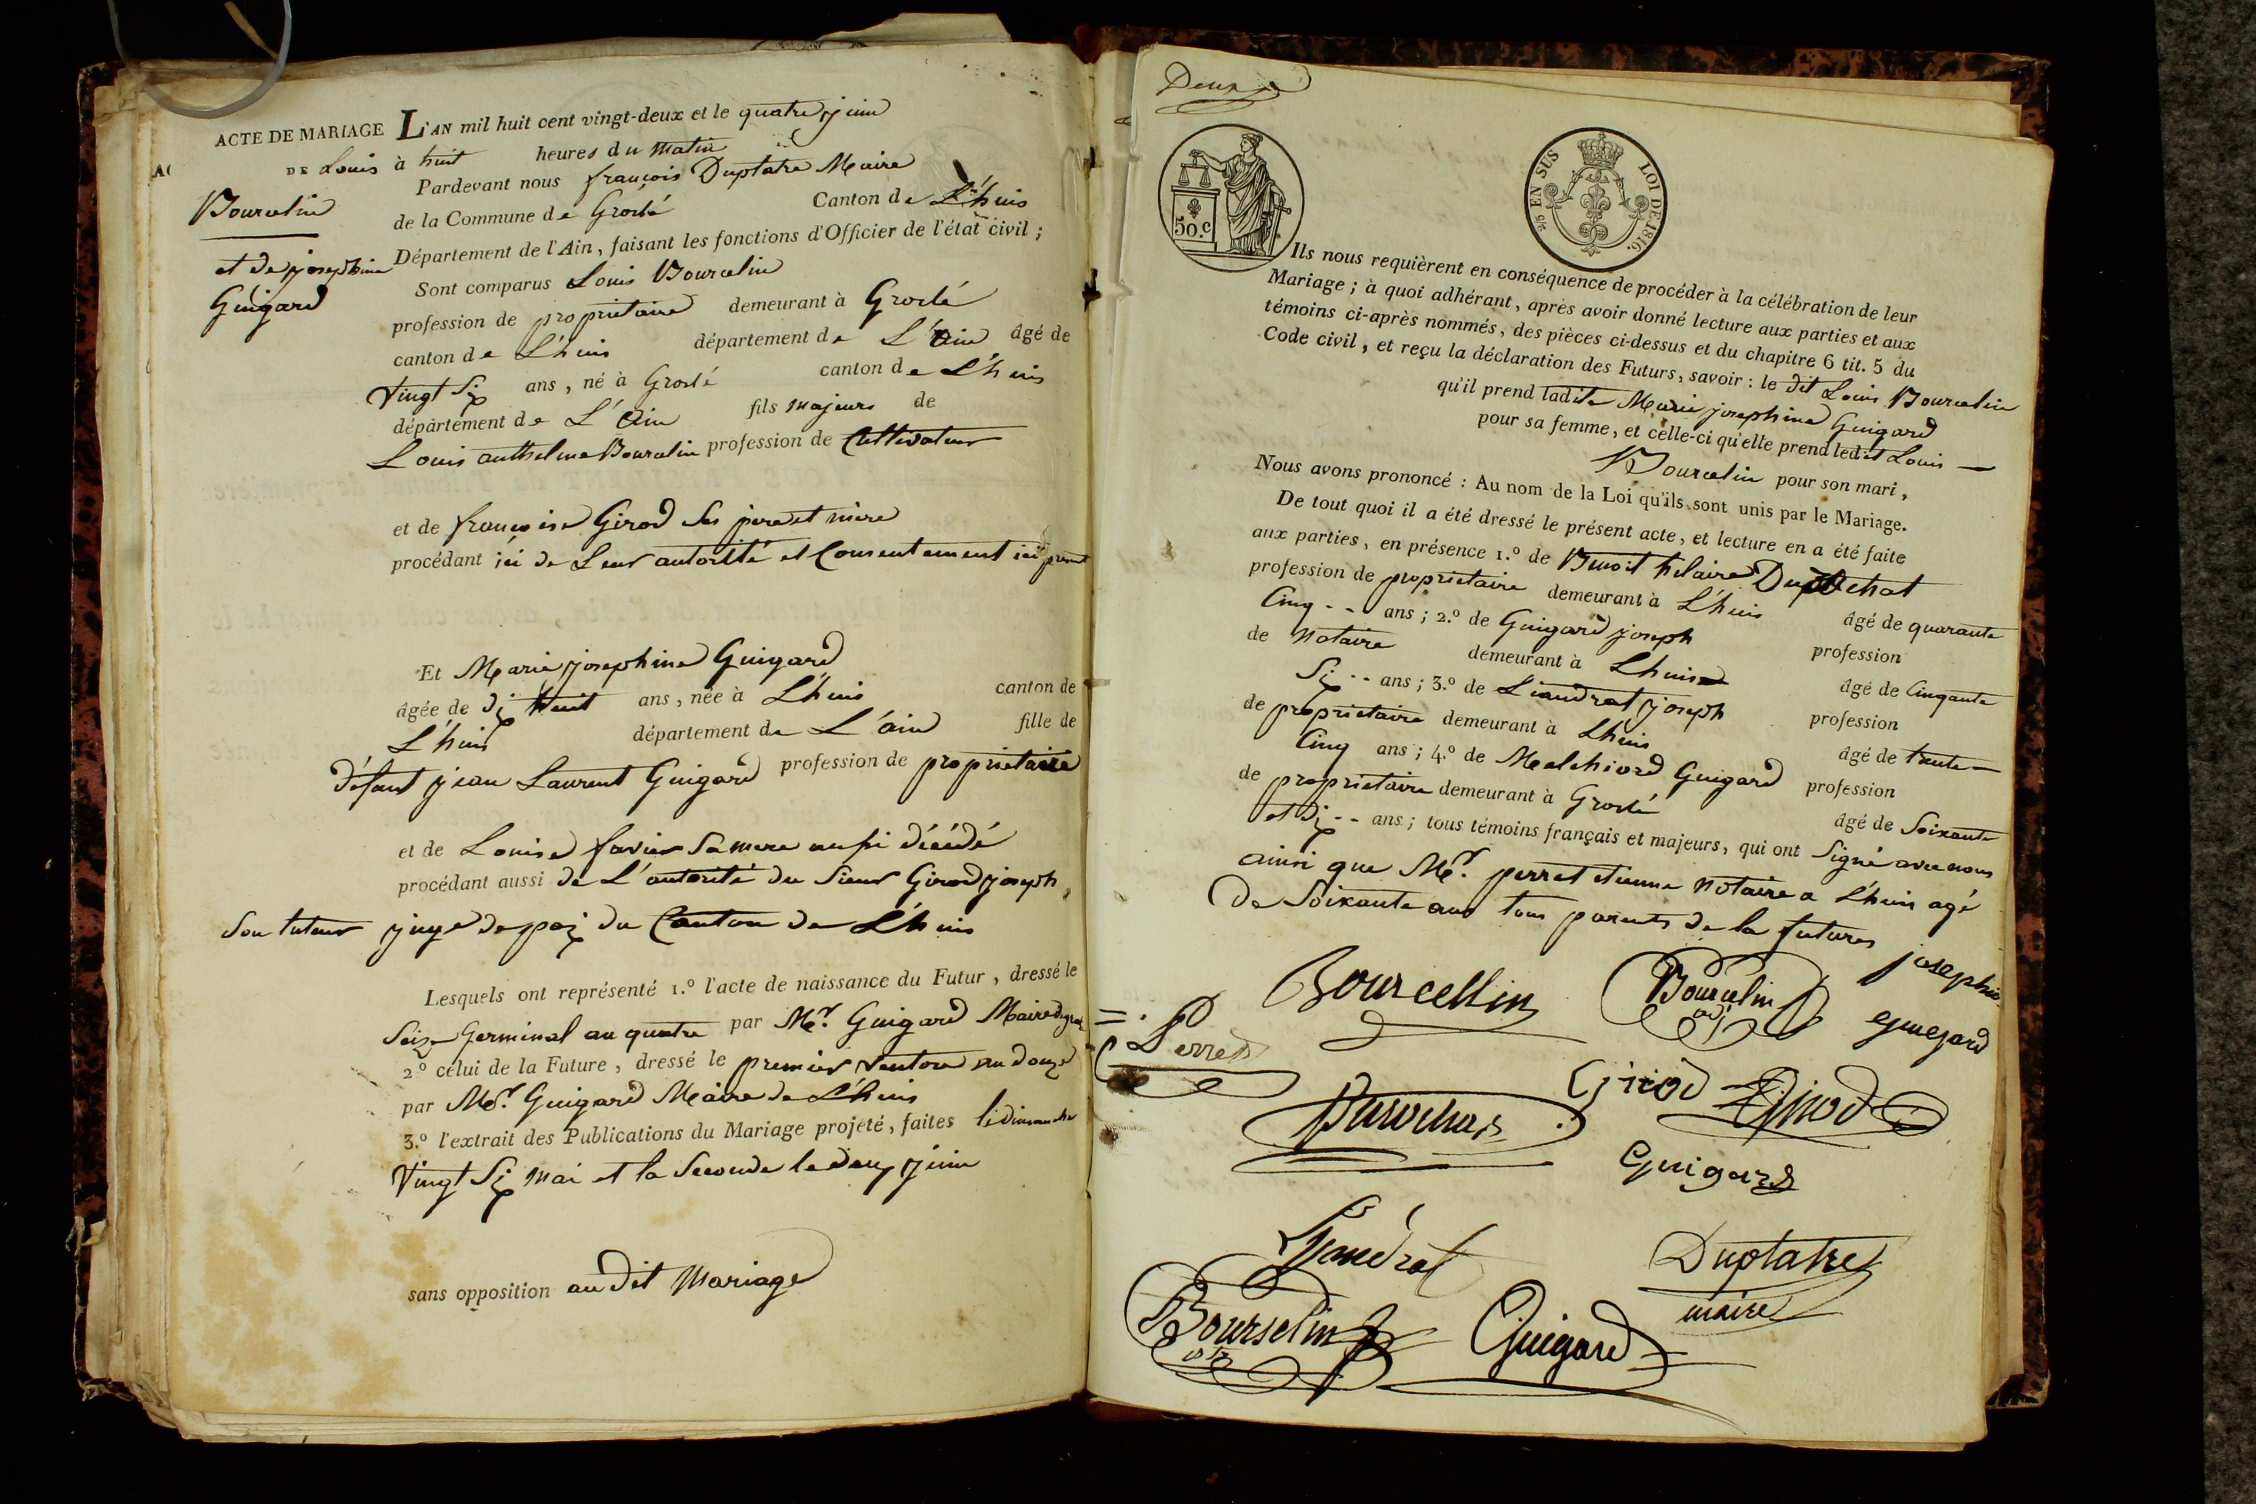 ACTE DE MARIAGE
DE Louis
Bourcelin
et de josephine
Guigard
L'AN mil huit cent vingt-deux et le quatre juin
à huit heures du matin
Pardevant nous françois Duplatre Maire
de la Commune de Groslé Canton de L'huis
Département de l'Ain, faisant les fonctions d'Officier de l'état civil ;
Sont comparus Louis Bourcelin
profession de proprietaire demeurant à Groslé
canton de L'huis département de L'ain âgé de
vingt six ans, né à Groslé canton de L'huis
département de L'ain fils majeurs de
Louis anthelme Bourcelin profession de Cultivateur
et de françoise Girod ses pere et mere
procédant ici de Leur autorité et Consentement ici present
Et Marie josephine Guigard
âgée de dix huit ans, née à L'huis canton de
L'huis département de L'ain fille de
défunt jean Laurent Guigard profession de proprietaire
et de Louise favier sa mere aussi décédé
procédant aussi de L'autorité du sieur Girod joseph,
son tuteur juge de paix du Canton de L'huis
Lesquels ont représenté 1.º l'acte de naissance du Futur, dressé le
seize Germinal an quatre par Mr. Guigard Maire de
2º celui de la Future, dressé le premier ventose an douze
par Mr. Guigard Maire de L'huis
3.º l'extrait des Publications du Mariage projeté, faites le dimanche
vingt six mai et la seconde le deux juin
sans opposition au dit Mariage
Deux
50.c
EN SUS LOI DE 1816.
Ils nous requièrent en conséquence de procéder à la célébration de leur
Mariage ; à quoi adhérant, après avoir donné lecture aux parties et aux
témoins ci-après nommés, des pièces ci-dessus et du chapitre 6 tit. 5 du
Code civil, et reçu la déclaration des Futurs, savoir : le dit Louis Bourcelin
qu'il prend ladite Marie josephine Guigard
pour sa femme, et celle-ci qu'elle prend ledit Louis
Bourcelin pour son mari,
Nous avons prononcé : Au nom de la Loi qu'ils sont unis par le Mariage.
De tout quoi il a été dressé le présent acte, et lecture en a été faite
aux parties, en présence 1.º de Benoit hilaire
profession de proprietaire demeurant à L'huis âgé de quarante
Cinq -- ans ; 2.º de Guigard joseph profession
de notaire demeurant à Lhuis âgé de Cinqante
six -- ans ; 3.º de Liandrat joseph profession
de proprietaire demeurant à Lhuis âgé de trente
Cinq ans ; 4.º de Melchiord Guigard profession
de proprietaire demeurant à Groslé âgé de soixante
et dix -- ans ; tous témoins français et majeurs, qui ont signé avec nous
ainsi que Mr. perret etienne notaire a L'huis agé
de soixante ans tous parents de la future
Bourcellin Bourcelin josephine
Perret guigard
Girod Girod
Durochat
Guigard
Liandrat Duplatre
maire
Bourselin Guigard